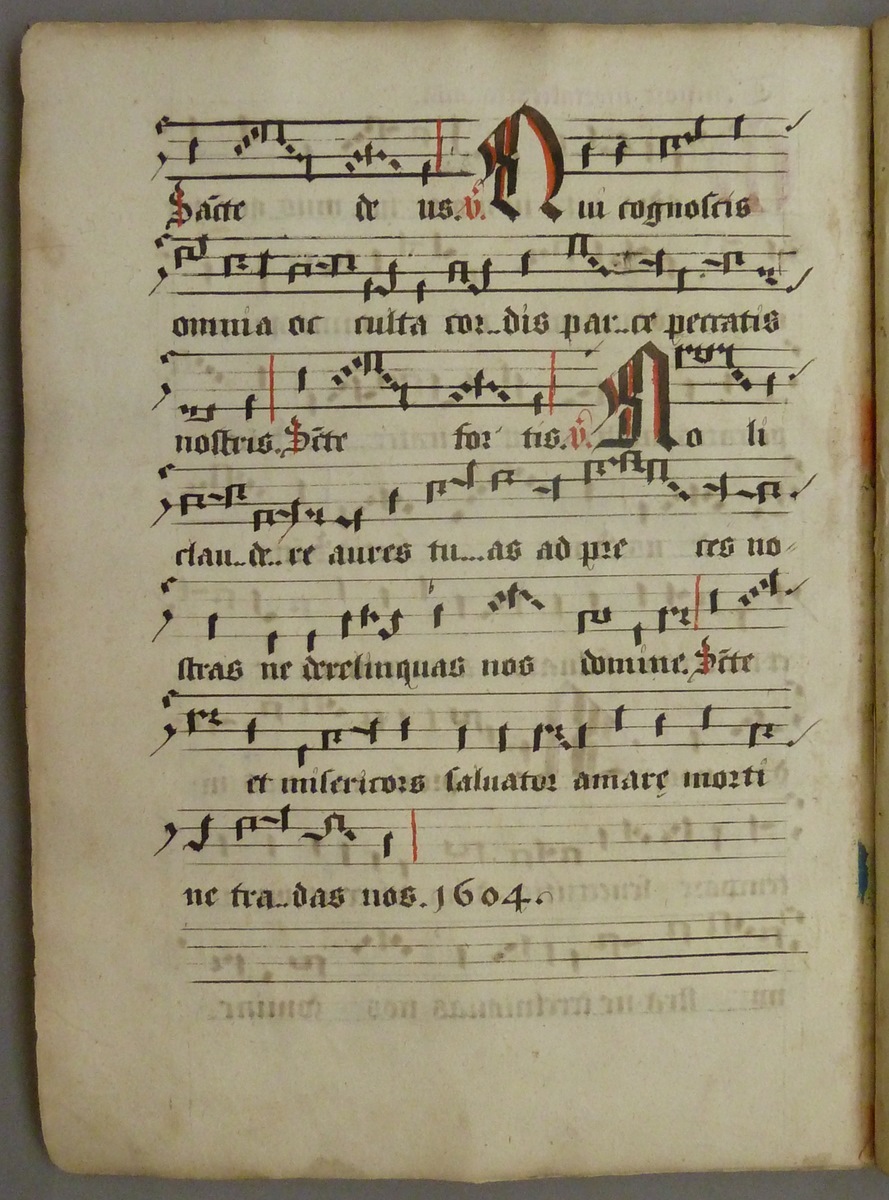 Sācte de us. v̄. Qui cognoscis
omnia oc culta cor..dis par..ce peccatis
nostris. Sc̄te for tis. v̄. No li
clau..de..re aures tu...as ad pre ces no-
stras ne derelinquas nos domine. Sc̄te
et misericors saluator amarę morti
ne tra..das nos. 1604.